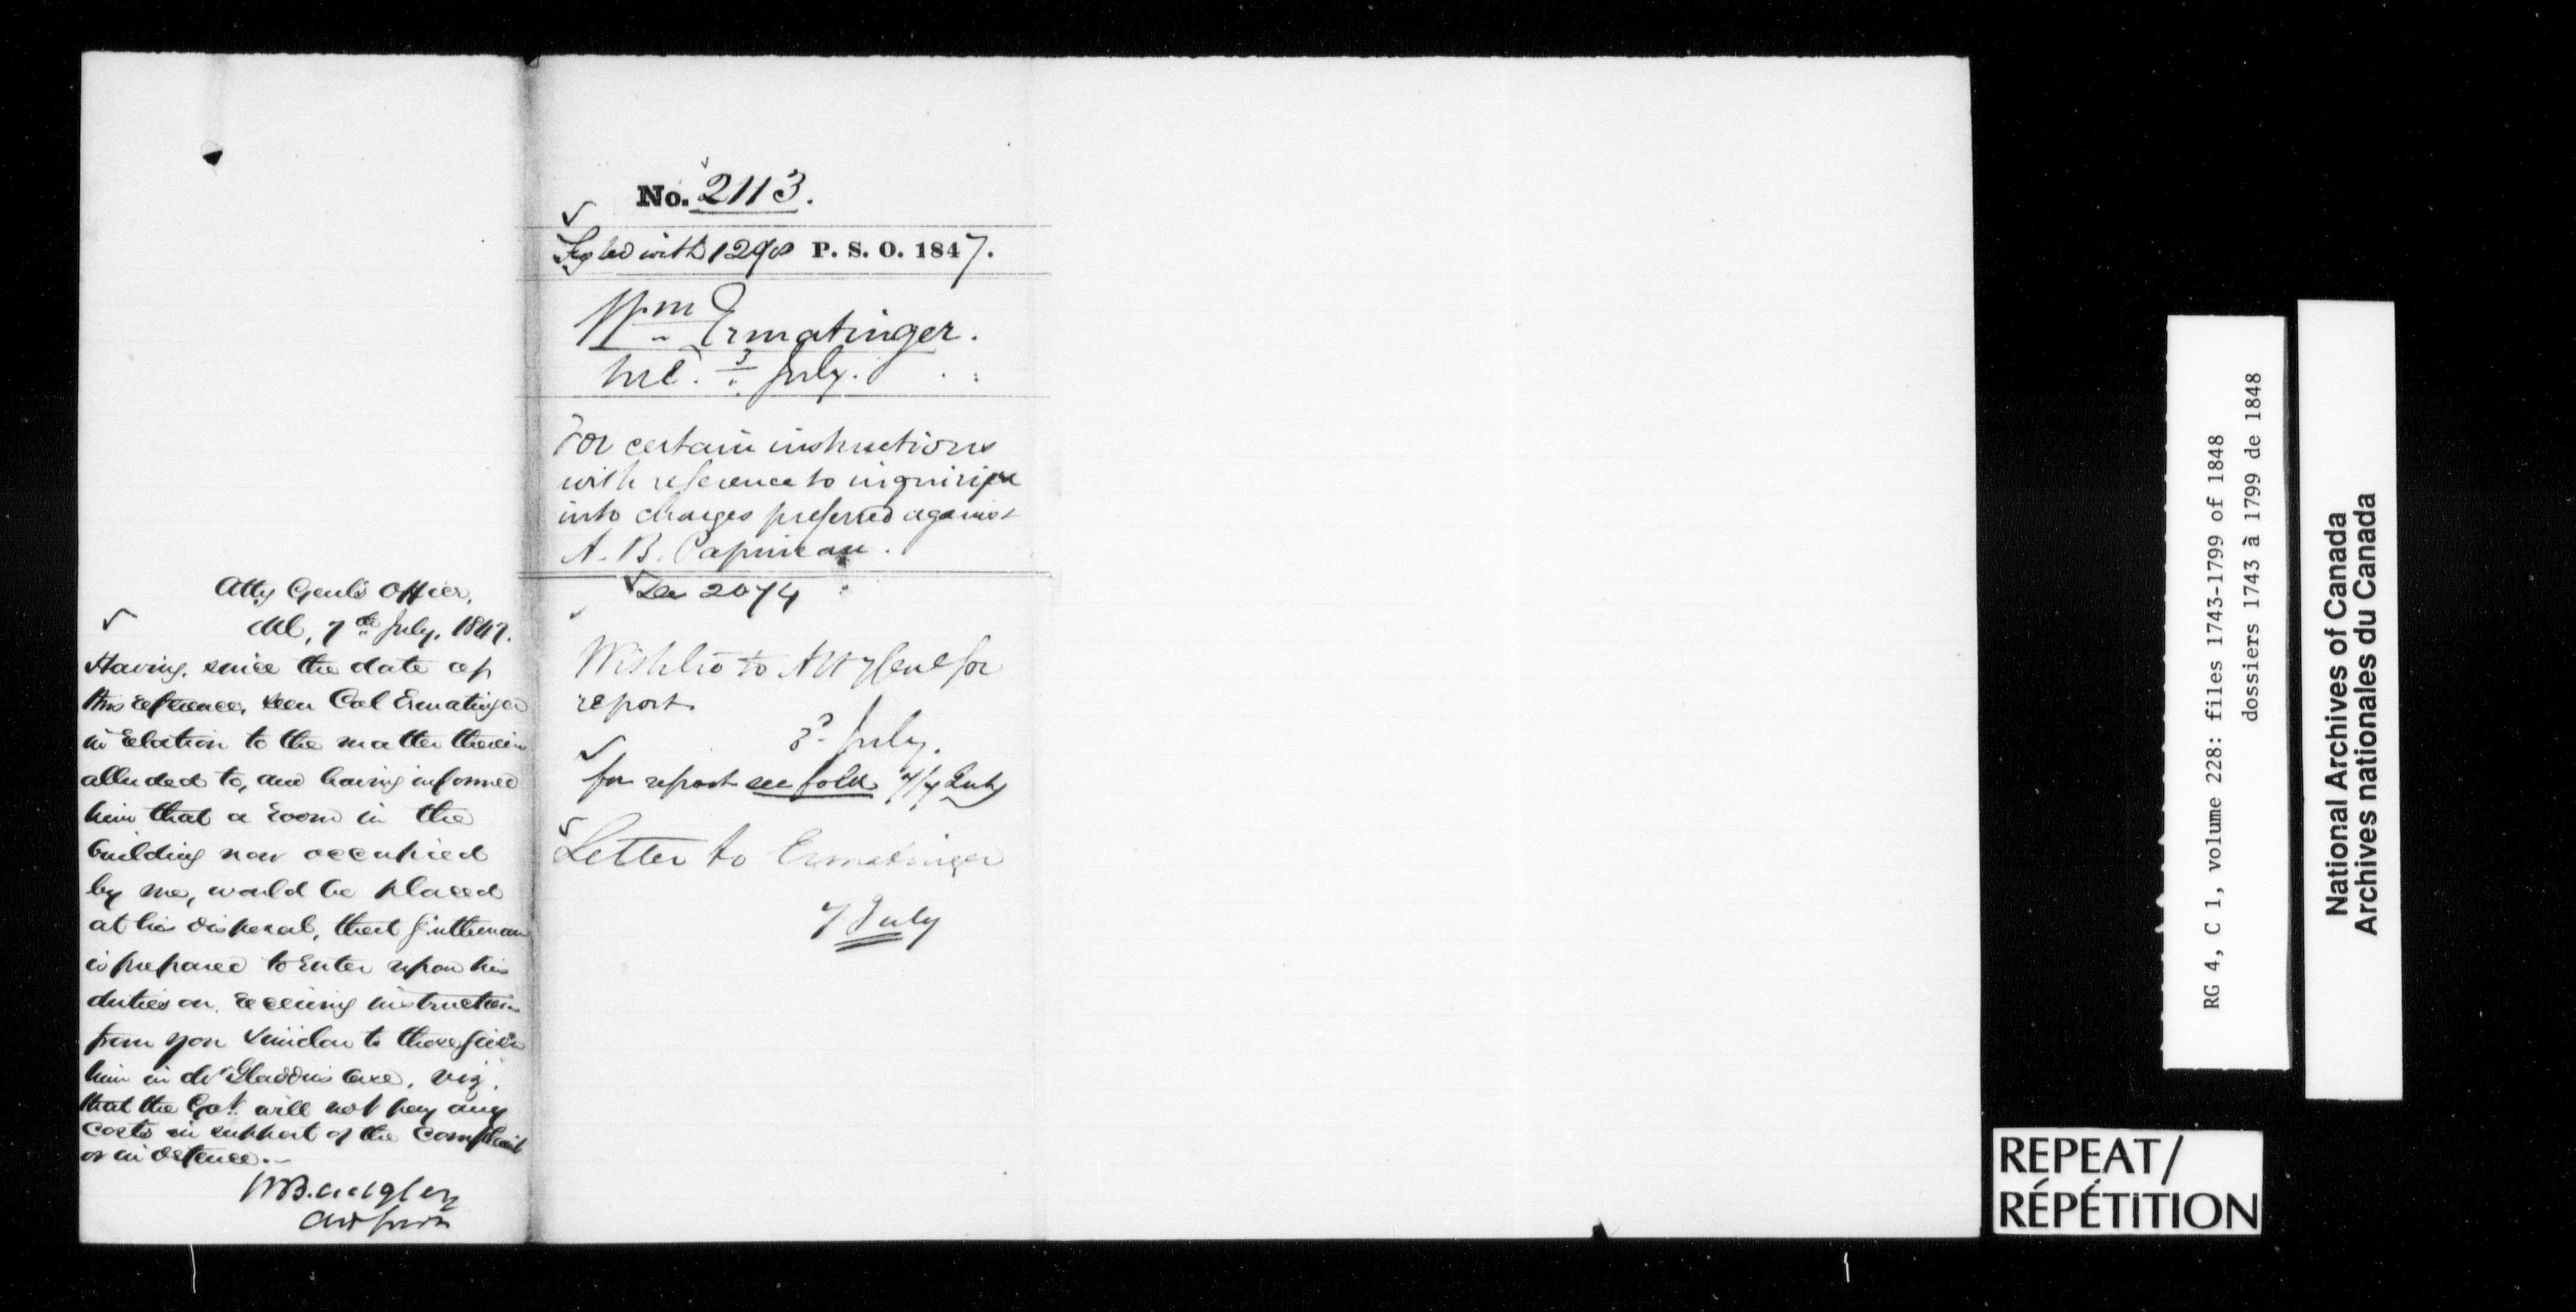 Atty Genl's Office,
Ml, 7th July, 1847.
Having, since the date of
this reference, seen Col Ermatinger
in relation to the matter therein
alluded to, and having informed
him that a room in the
building now occupied
by me, would be placed
at his disposal, that gentleman
is prepared to enter upon his
duties on receiving instructions
from you similar to those given
him in case, viz.
that the Govt. will not pay any
costs in support of the complaint
or in defence.-
No. 2113.
with 1298 P. S. O. 1847.
Wm Ermatinger.
Ml. 3 July.
For certain instructions
with reference to inquiries
into charges preferred against
A. B. Papineau.
See 2074
to Atty Genl for
report.
3d July.
for report see fold 7/7 July
Letter to Ermatinger
7 July
RG 4, C 1, volume 228: files 1743-1799 of 1848
dossiers 1743 à 1799 de 1848
National Archives of Canada
Archives nationales du Canada
REPEAT/
RÉPÉTITION